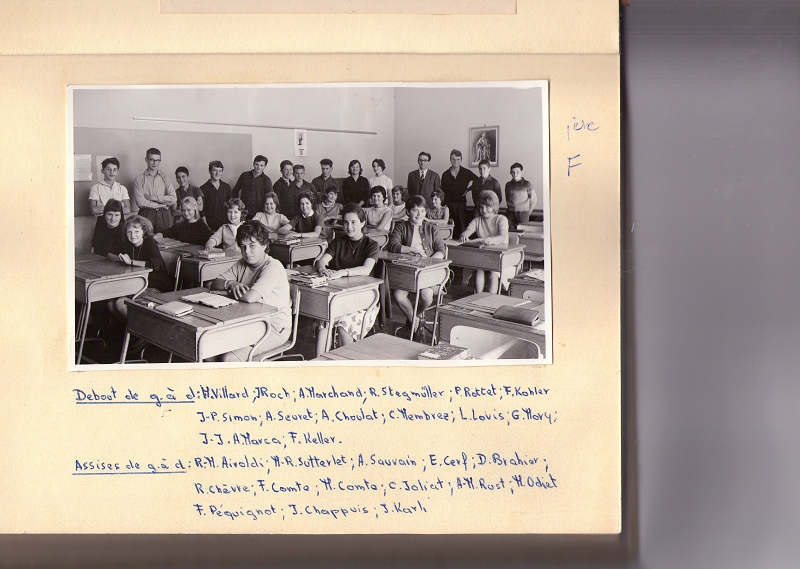 ière
F
Debout de g. à d: H. Villard; J. Roch; A. Marchand; R. Stegmüller; P. Rottet; F. Kohler
J-P. Simon; A. Seuret; A. Choulat; C. Membrez; L. Lovis; G. Mory;
J-J. A. Marca; F. Keller.
Assises de g. à d: R.-M. Airoldi; H-R. Sutterlet; A. Sauvain; E. Cerf; D. Brahier;
R. Chèvre; F. Comte; M. Comte; C. Joliat; A-M. Rust; M. Odiet
F. Péquignot; J. Chappuis; J. Karli